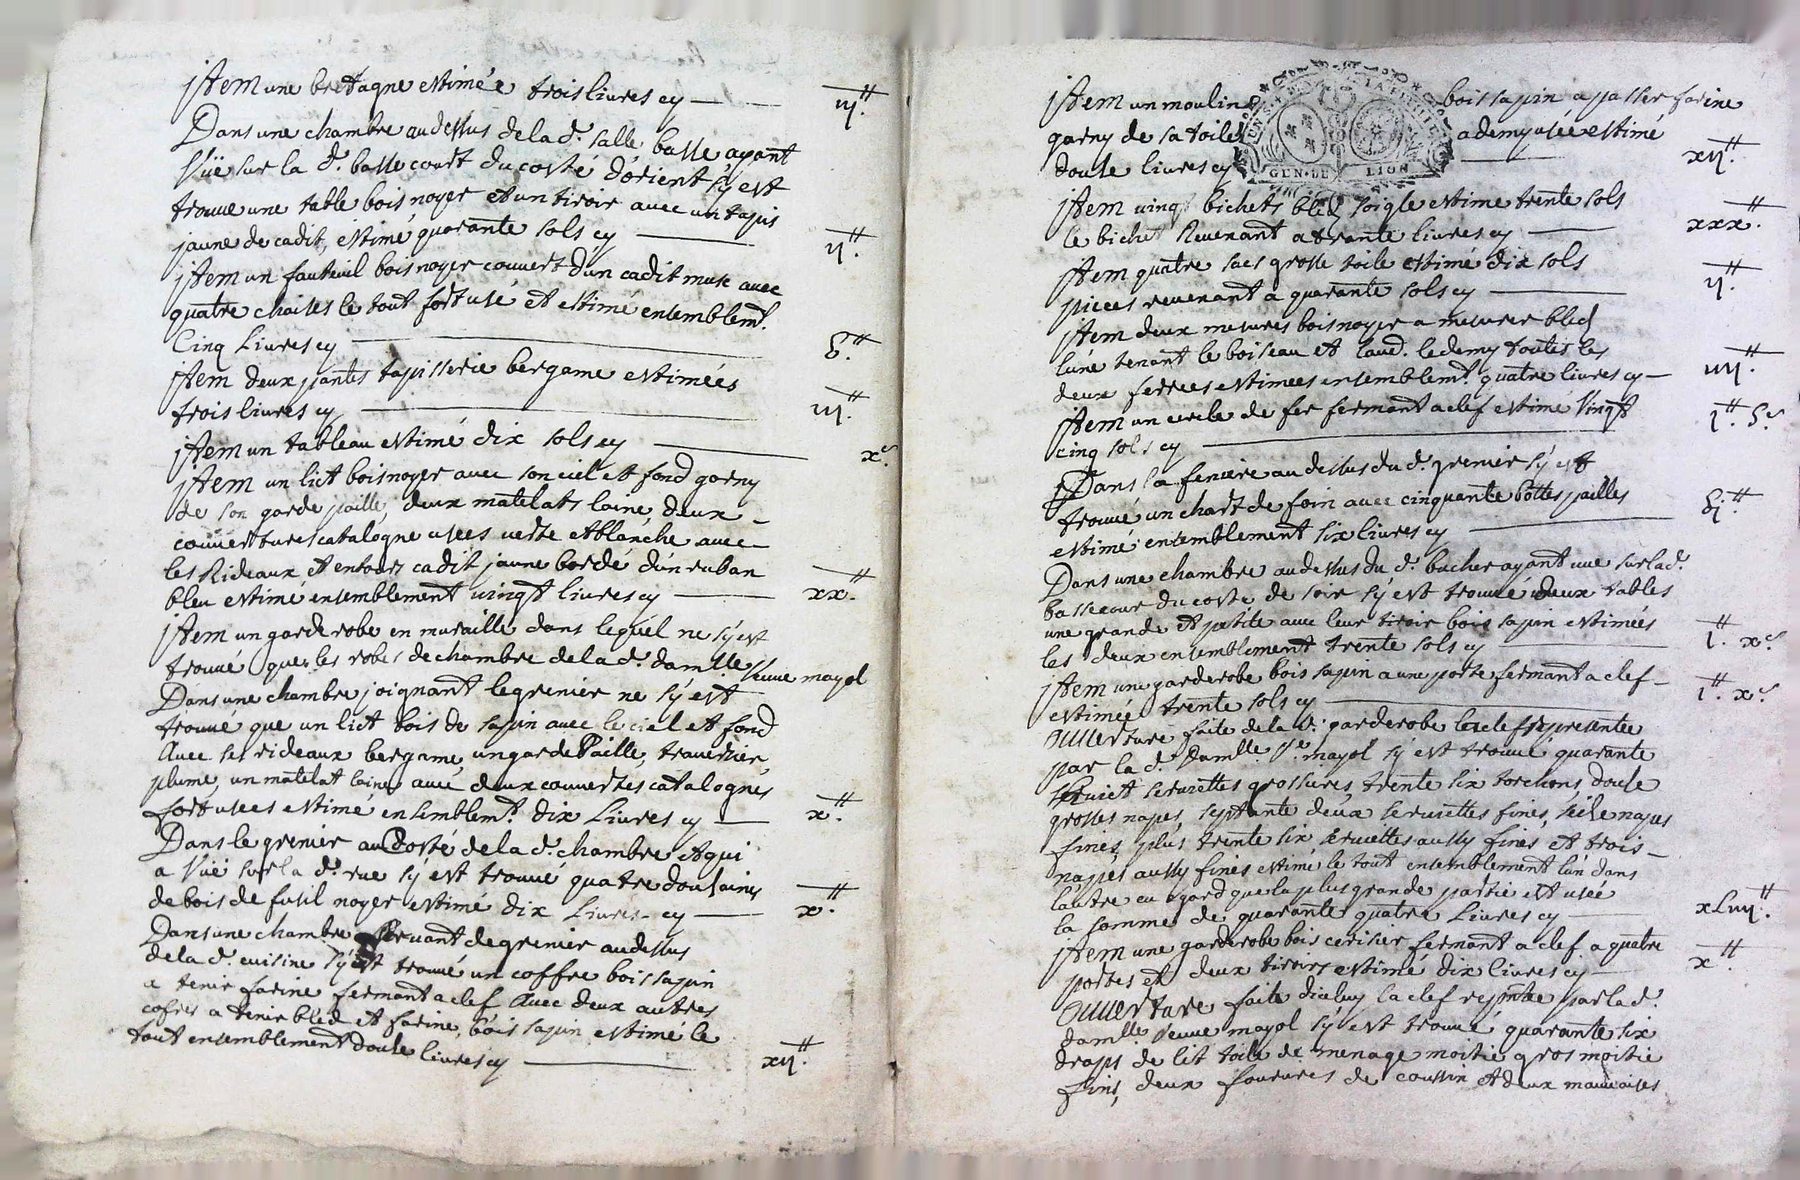 jtem une bretagne estimée trois livres cy — iij.tt
Dans une chambre au dessus de la d. salle basse ayant
Vüe sur la d. basse court du costé d'orient s'y est
trouve une table bois noyer et un tiroir avec un tapis
jaune de cadit, estimé quarante sols cy — ij.tt
jtem un fauteuil bois noyer couvert d'un cadit musc avec
quatre chaises le tout fort usé et estimé ensemblemt.
Cinq Livres cy — 5.tt
jtem deux pantes tapisserie bergame estimées
trois livres cy — iij.tt
jtem un tableau estimé dix sols cy — x.s
jtem un lict bois noyer avec son ciel et fond garny
de son garde paille, deux matelats laine, deux
couvertures catalogne usees verte et blanche avec
les Rideaux et entours cadit jaune bordé d'un ruban
bleu estimé ensemblement vingt livres cy — xx.tt
jtem un garderobe en muraille dans lequel ne s'y est
trouvé que les robes de chambre de la d. damlle veuve mayol
Dans une chambre joignant le grenier ne s'y est
trouvé que un lict bois de sapin avec le ciel et fond
avec ses rideaux bergame, un garde Paille, traversier,
plume, un matelat laine avec deux couvertes catalognes
fort usees estimé ensemblemt. dix Livres cy — x.tt
Dans le grenier au Costé de la d. chambre et qui
a Vüe sur la d. rue s'y est trouvé quatre douzaines
de bois de fusil noyer estimé dix Livres cy — x.tt
Dans une chambre servant de grenier au dessus
de la d. cuisine s'y est trouvé un coffre bois sapin
a tenir farine fermant a clef avec deux autres
cofres a tenir bled et farine, bois sapin estimé le
tout ensemblement douse livres cy — xij.tt
jtem un moulin bois sapin a passer farine
garny de sa toile a demy usée estimé
douse livres cy — xij.tt
GEN. DE LION
jtem vingt bichets bled soigle estime trente sols
le bichet Revenant a trante livres cy — xxx.tt
jtem quatre sacs grosse toile estime dix sols
pieces revenant a quarante sols cy — ij.tt
jtem deux mesures bois noyer a mesurer bled
l'une tenant le boiseau et laud. le demy toutes les
deux ferrees estimees ensemblemt. quatre livres cy — iiij.tt
jtem un cercle de fer fermant a clef estime Vingt
cinq sols cy — 1.tt 5.s
Dans la feniere au dessus du d. grenier s'y est
trouvé un chart de foin avec cinquante bottes pailles
estimé ensemblement six livres cy — 6j.tt
Dans une chambre au dessus du d. bucher ayant vue sur la d.
basse cour du coste de soir s'y est trouvé deux tables
une grande et petite avec leur tiroir bois sapin estimées
les deux ensemblement trente sols cy — 1.tt x.s
jtem une garderobe bois sapin a une porte fermant a clef
estimée trente sols cy — 1.tt x.s
Ouverture faite de la d. garderobe la clef representée
par la d. Damlle. Ve. mayol s'y est trouvé quarante
huict serviettes grossures, trente six torchons, douse
grosses napes, septante deux serviettes fines, seize napes
fines, plus trente six serviettes aussy fines et trois
napes aussy fines estimé le tout ensemblement l'un dans
l'autre eu egard que la plus grande partie est usée
la somme de quarante quatre Livres cy — xLiiij.tt
jtem une garderobe bois cerisier fermant a clef a quatre
portes et deux tiroirs estimé dix livres cy — x.tt
Ouverture faite d'icelluy la clef repntée par la d.
damlle veuve mayol s'y est trouvé quarante six
draps de lit toile de menage moitie gros moitie
fins, deux fourures de coussin et deux mauvaises